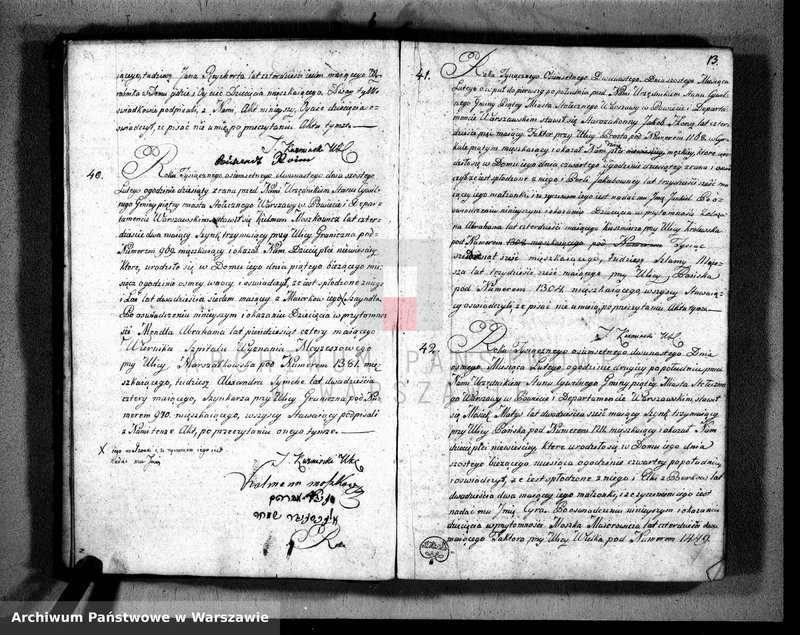 iącego, tudzież Jana Reycherta lat czterdzieści siedm maiącego
w Domu gdzie i Oyciec Dziecięcia mieszkaiącego. Dwaj tylko
świadkowie podpisali, z Nami, Akt ninieyszy, Oyciec dziecięcia o-
świadczył, że pisać nie umie, po przeczytaniu Aktu tymże.
J. Kuzminski
40.
Roku Tysiącznego ośmsetnego dwunastego dnia szostego
Lutego ogodzinie dziesiątey z rana przed Nami Urzędnikiem Stanu Cywil-
nego Gminy piątey miasta Stołecznego Warszawy w Powiecie i Depar-
tamencie Warszawskim stawił się Kielmon Moszkowicz lat czter-
dzieście dwa maiący Szynk trzymaiący przy Ulicy Graniczna pod
Numerem 969 mieszkaiący i okazał Nam Dziecię płci niewieściey,
które urodziło się w Domu iego dnia piątego bieżącego mie-
siąca ogodzinie osmey w nocy i oświadczył, że iest spłodzone z niego
i Lai lat dwadzieścia siedem maiącey z Maierków iego X Szayndla
Po oświadczeniu ninieyszym i okazaniu Dziecięcia w przytomno-
ści Mendla Abrahama lat piendziesiąt cztery maiącego
Wiernika Szpitalu Wyznania Moyżeszowego
przy Ulicy Marszałkowska pod Numerem 1381 mie-
szkaiącego, tudzież Alexandra Symche lat dwadzieścia
cztery maiącego, Szynkarza przy Ulicy Graniczna pod Nu-
merem 970 mieszkaiącego, wszyscy Stawaiący podpisali
z Nami tenże Akt, po przeczytaniu onego tymże.
X iego małżonki i że życzeniem iego iest
nadać mu Imię
J. Kuzminski
Kalmann
13.
41.
Roku Tysiącznego Ośmsetnego Dwunastego, Dnia szostego Miesiąca
Lutego o w puł do pierwszy po południu przed Nami Urzędnikiem Stanu Cywil-
nego Gminy Piątey Miasta Stołecznego Warszawy w Powiecie i Departa-
mencie Warszawskim stawił się Starozakonny Jakob Herz lat czter-
dzieścia pięć maiący Faktor przy Ulicy Prosta pod Numerem 1108 w Cyr-
kule piątym mieszkaiący i okazał Nam płci męskiey, które uro-
dziło się w Domu iego dnia czwartego ogodzinie dziewiątey z rana i oświad-
czył że iest spłodzone z niego i Perli Jakubowey lat trzydzieści sześć ma-
iącey iego małżonki, i że życzeniem iego iest nadać mu Imię Jankiel. Po o-
świadczeniu ninieyszym i okazaniu Dziecięcia w przytomności
Abrahama lat czterdzieści maiącego kuśnierza przy Ulicy Krolewska
pod Numerem Tysiąc
sześćdziesiąt sześć mieszkaiącego, tudzież Selamy Majo-
sza lat trzydzieści sześć maiącego przy Ulicy Pańska
pod Numerem 1304 mieszkaiącego wszyscy Stawaią-
cy oświadczyli, że pisać nie umieią, po przeczytaniu Aktu tymże.
J. Kuzminski
42.
Roku Tysiącznego ośmsetnego dwunastego Dnia
osmego Miesiąca Lutego ogodzinie drugiey po południu przed
Nami Urzędnikiem Stanu Cywilnego Gminy piątey Miasta Stołeczne-
go Warszawy w Powiecie i Departamencie Warszawskim stawił
się Mosiek Matys lat dwadzieścia sześć maiący Szynk trzymaiący
przy Ulicy Pańska pod Numerem 1211 mieszkaiący i okazał Nam
dziecię płci niewieściey, które urodziło się w Domu iego dnia
szostego bieżącego miesiąca ogodzinie czwartey po południu,
i oświadczył, że iest spłodzone z niego i Elki z Berków lat
dwadzieścia dwa maiącey iego małżonki, i że życzeniem iego iest
nadać mu Imię Cyra. Po oświadczeniu ninieyszym i okazaniu
dziecięcia w przytomności Moszka Mazerowicza lat czterdzieści dwa
maiącego Faktora przy Ulicy Wielka pod Numerem 1449
ARCHIWUM PAŃSTWOWE
W WARSZAWIE
Archiwum Państwowe w Warszawie